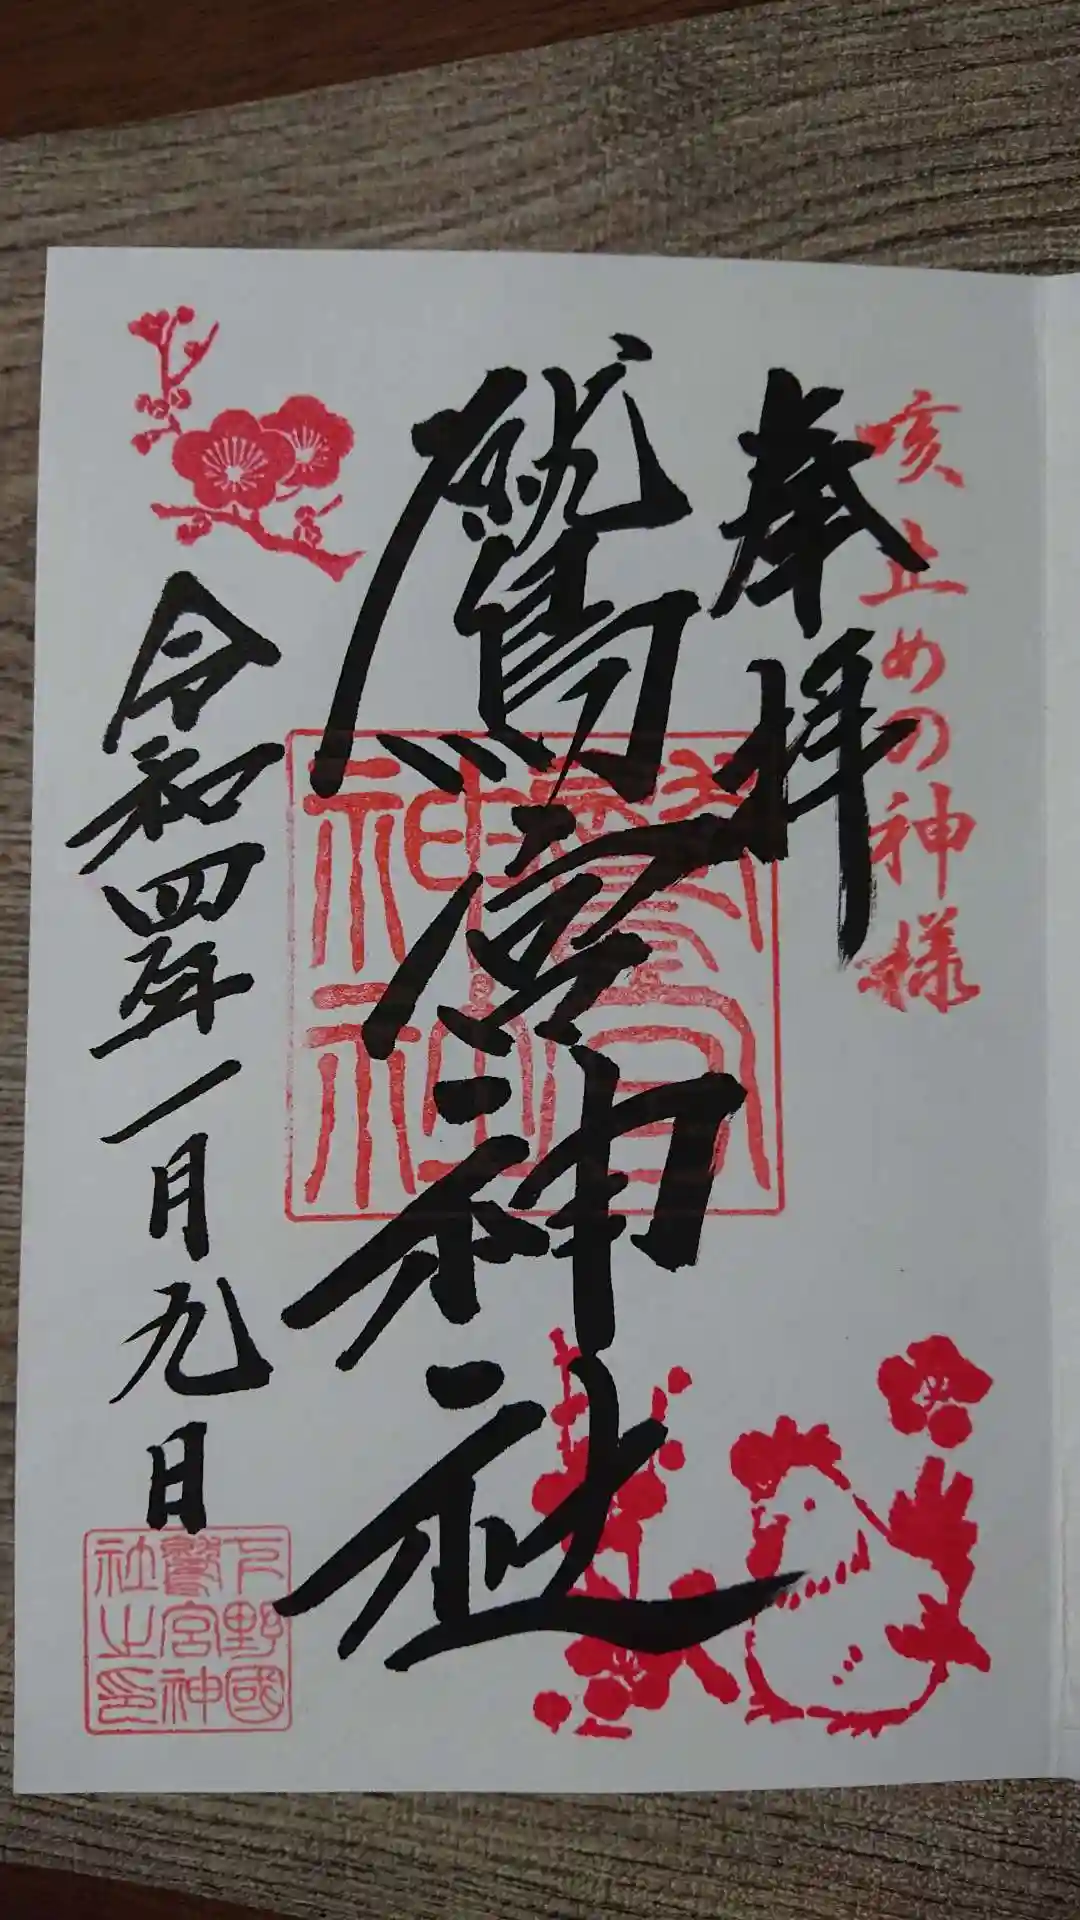 咳止めの神様
奉拝
鷲宮神社
鷲宮
神社
令和四年一月九日
下野國
鷲宮神
社之印